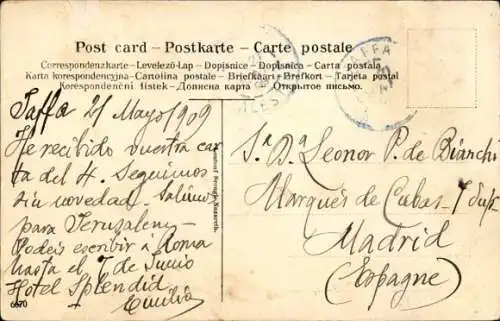 Post card – Postkarte – Carte postale
Correspondenzkarte – Levelező-Lap – Dopisnice – Dopisnica – Carta postala
Karta korespondencyjna – Cartolina postale – Briefkaart – Brefkort – Tarjeta postal
Korespondenční lístek – Дописна карта – Открытое письмо.
JAFFA
Jaffa 21 Mayo 1909
He recibido vuestra car
ta del 4. Seguimos
sin novedad. Salimos
para Jeruzalem
Podeis escribir a Roma
hasta el 7 de Junio
Hotel Splendid
Emilia
Sra Da Leonor P. de Bianchi
Marqués de Cubas - 7 dup
Madrid
(Espagne)
6670